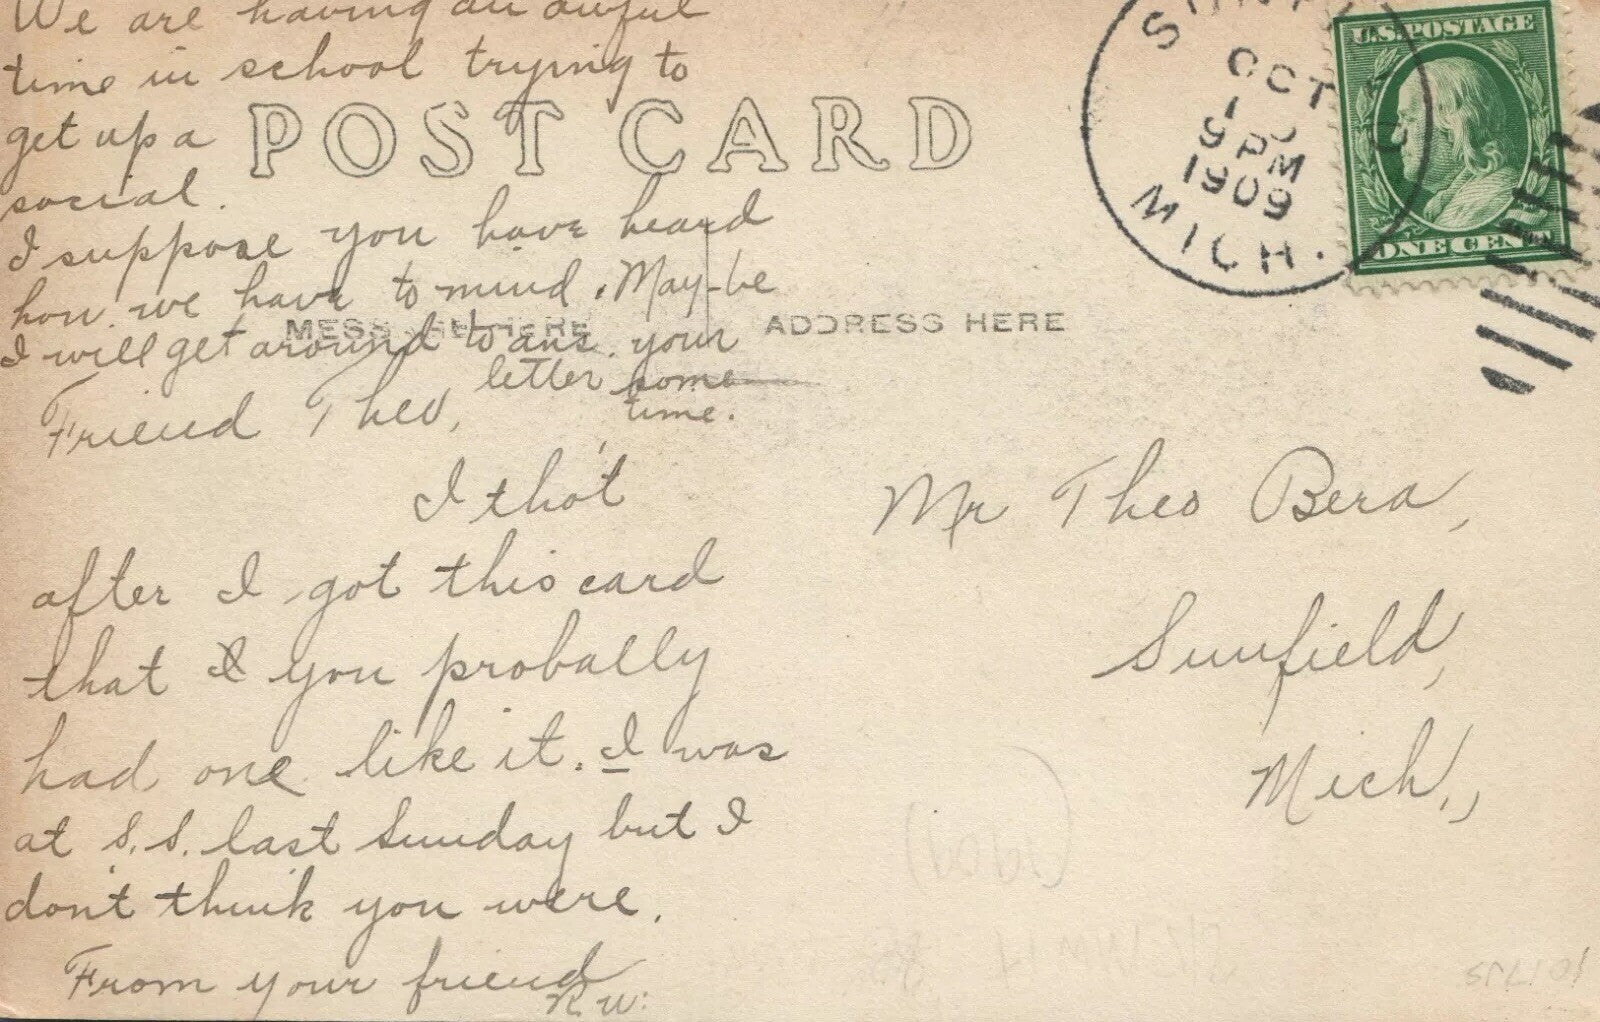 We are having an awful
time in school trying to
get up a
social.
I suppose you have heard
how we have to mind. May-be
I will get around to ans. your
letter some
time.
POST CARD
MESS HERE
ADDRESS HERE
Friend Theo,
I tho't
after I got this card
that I you probally
had one like it. I was
at S.S. last Sunday but I
don't think you were.
From your friend
R.W.
Mr Theo Bera,
Sunfield,
Mich.,
OCT
9 PM
1909
MICH.
U.S. POSTAGE
ONE CENT